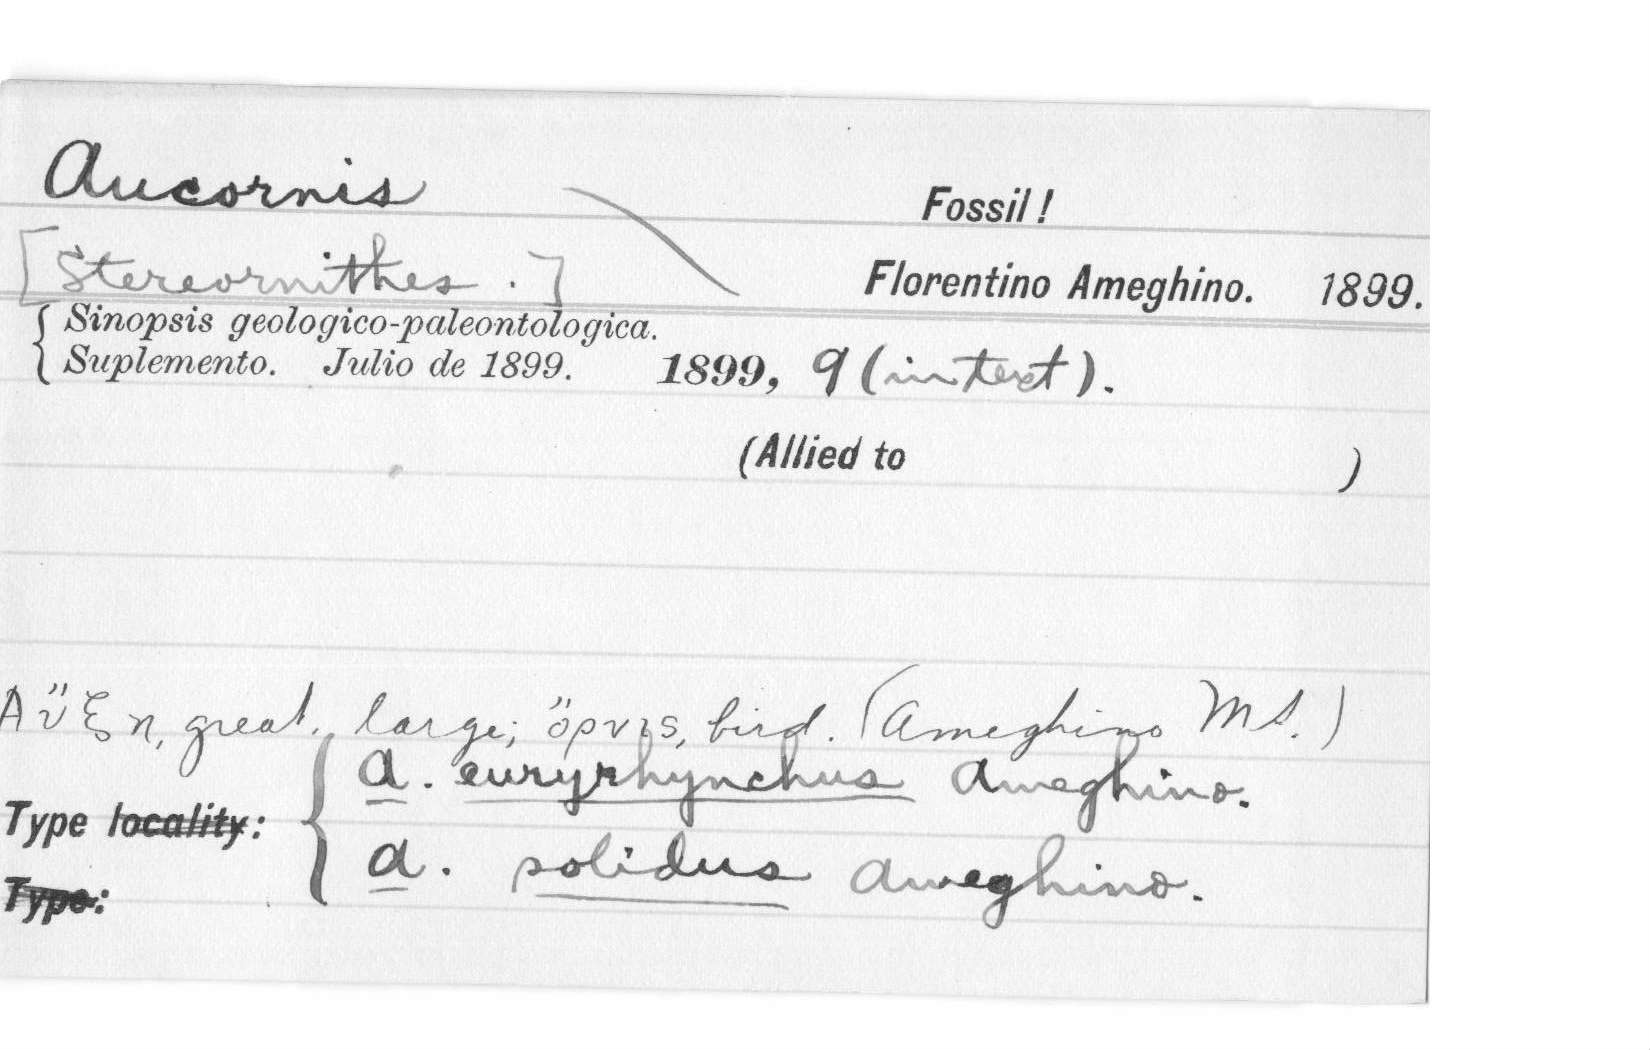 Aucornis
Fossil!
[Stereornithes.]
Florentino Ameghino. 1899.
Sinopsis geologico-paleontologica.
Suplemento. Julio de 1899. 1899, 9 (in text).
(Allied to )
Αὔξη, great, large; ὄρνις, bird. (Ameghino MS.)
A. euryrhynchus Ameghino.
Type locality:
A. solidus Ameghino.
Type: